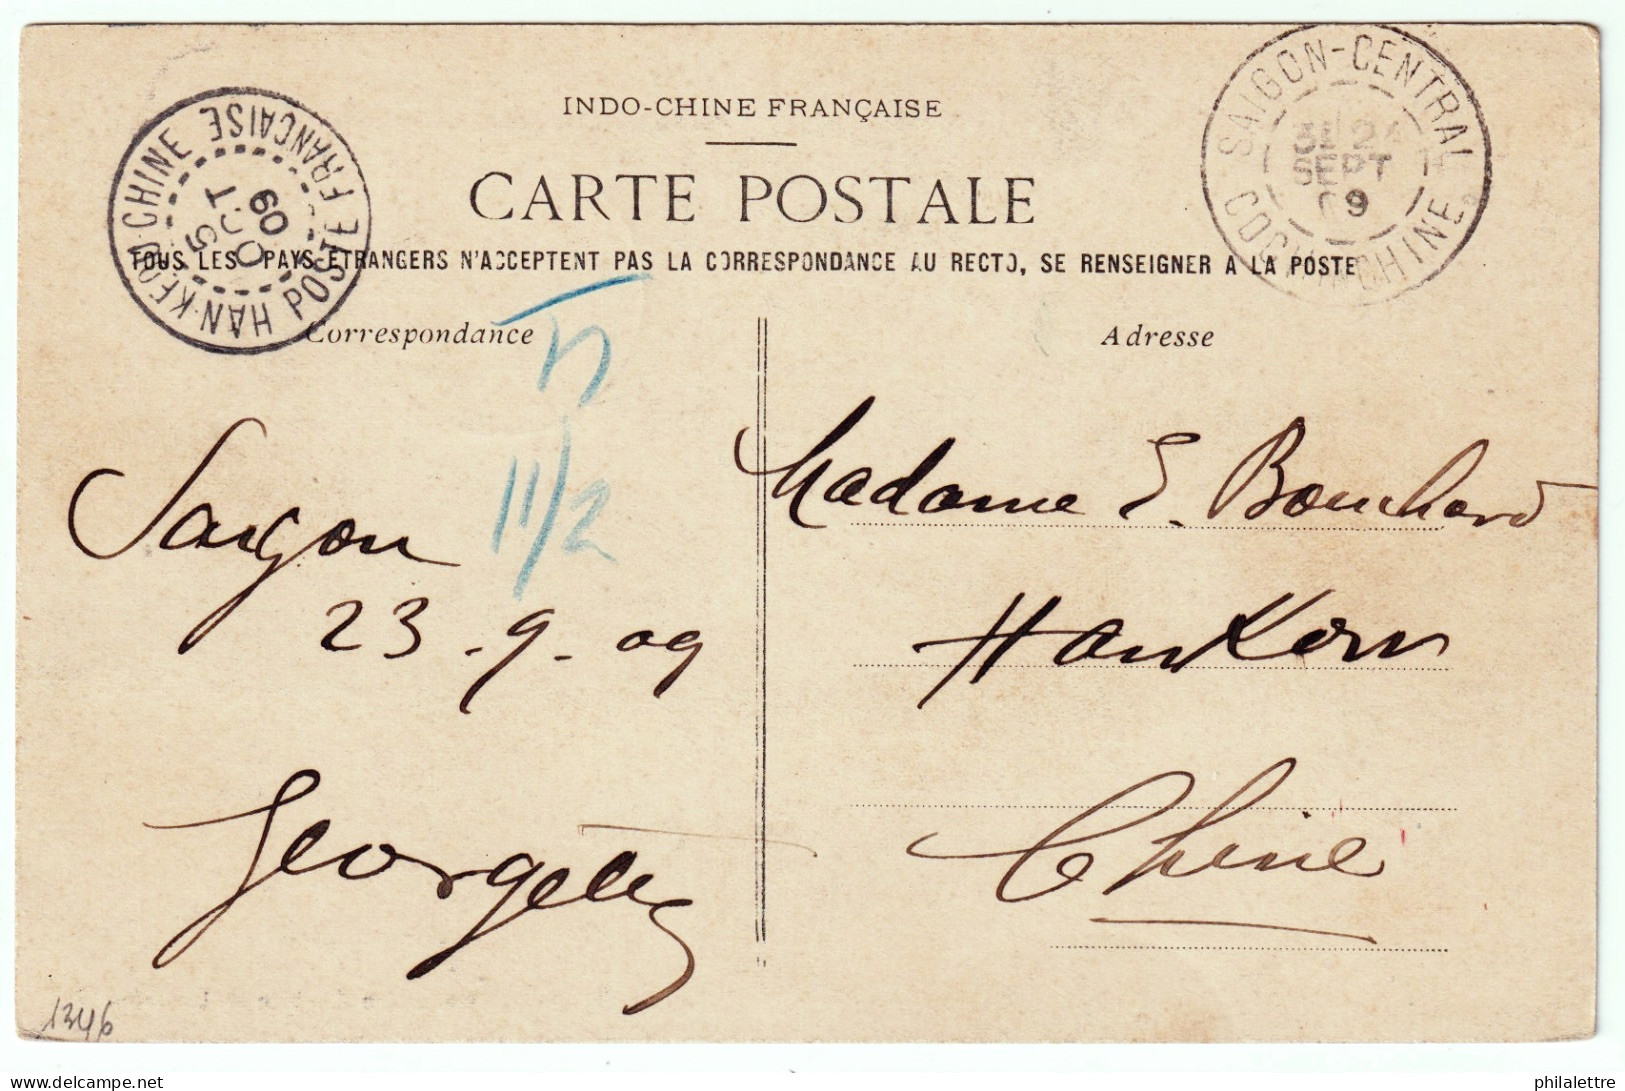 INDO-CHINE FRANÇAISE
CARTE POSTALE
TOUS LES PAYS ÉTRANGERS N'ACCEPTENT PAS LA CORRESPONDANCE AU RECTO, SE RENSEIGNER A LA POSTE
HAN-KEOU-CHINE
POSTE FRANCAISE
5
OCT
09
SAIGON-CENTRAL
SEPT
09
COCHINCHINE
Correspondance
Adresse
11/2
Saigon
23-9-09
Madame E. Bouchard
Hankow
Chine
1346
philalettre